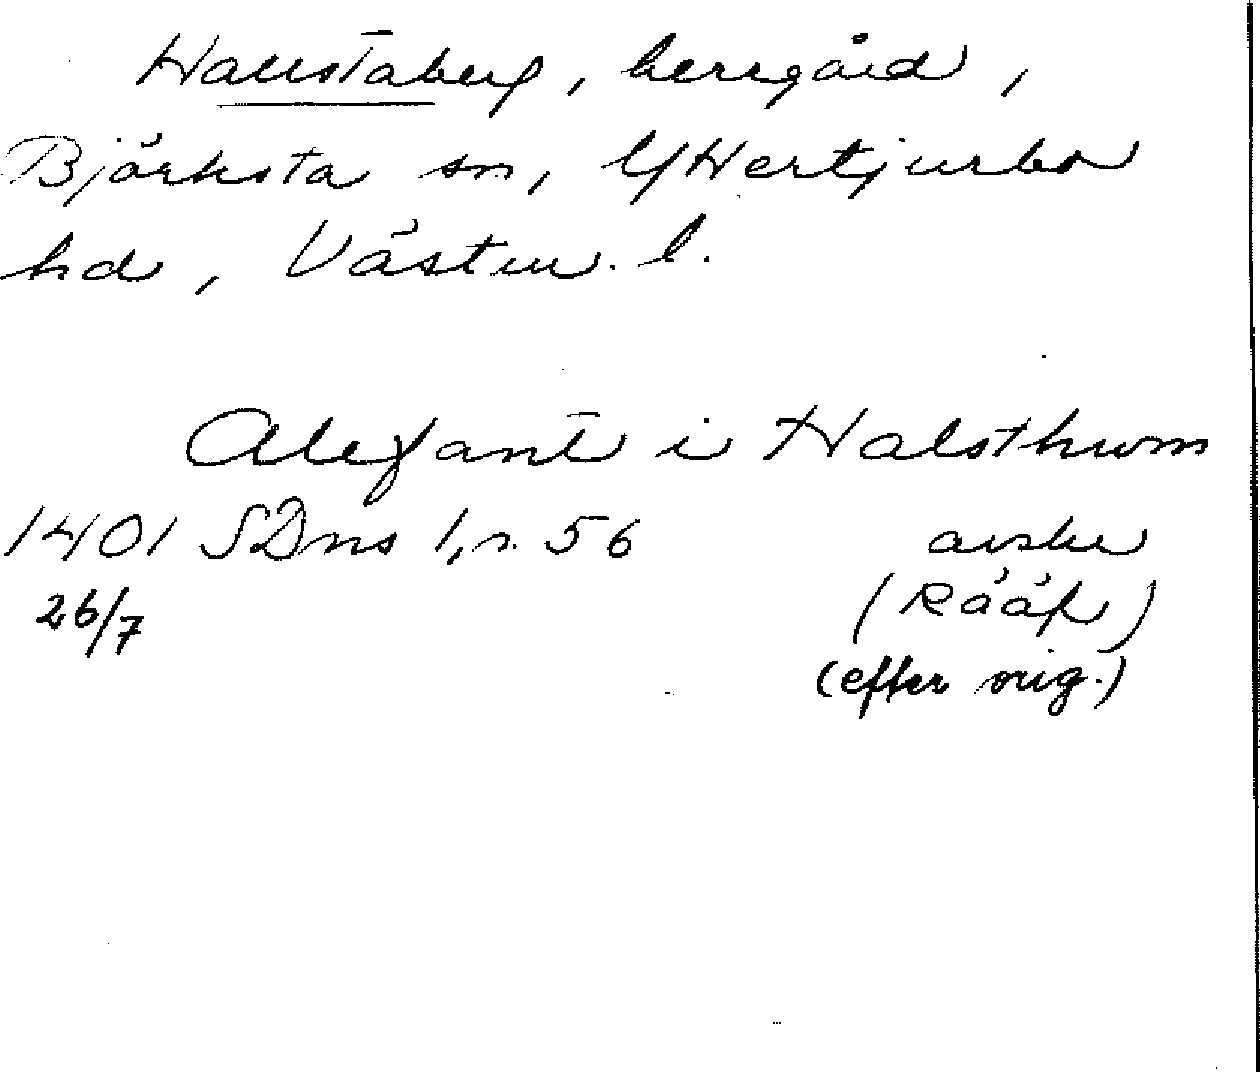 Hallstaberg, herrgård,
Björksta sn, Yttertjurbo
hd, Västm. l.
Alefant i Halsthwm
1401 SDns 1, s. 56 avskr
26/7 (Rääf)
(efter orig.)